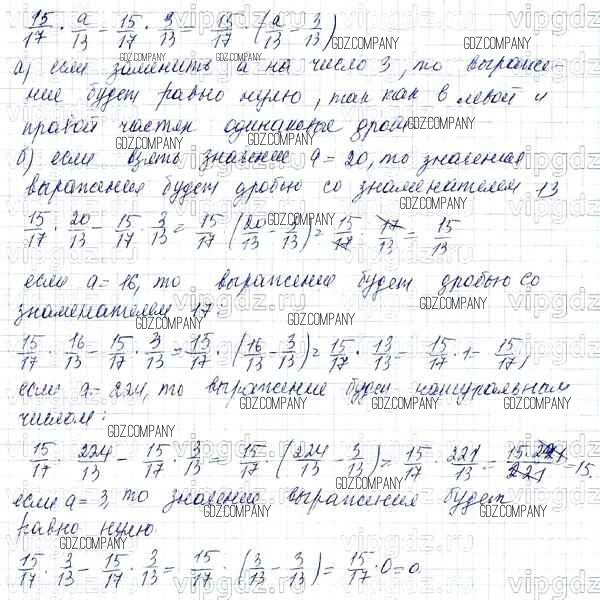 15/17 · a/13 - 15/17 · 3/13 = 15/17 · (a/13 - 3/13)
а) если заменить a на число 3, то выраже-
ние будет равно нулю, так как в левой и
правой частях одинаковые дроби
б) если взять значение a = 20, то значения
выражения будет дробью со знаменателем 13
15/17 · 20/13 - 15/17 · 3/13 = 15/17 (20/13 - 3/13) = 15/17 · 17/13 = 15/13
если a = 16, то выражение будет дробью со
знаменателем 17:
15/17 · 16/13 - 15/17 · 3/13 = 15/17 · (16/13 - 3/13) = 15/17 · 13/13 = 15/17 · 1 = 15/17,
если a = 224, то выражение будет натуральным
числом:
15/17 · 224/13 - 15/17 · 3/13 = 15/17 · (224/13 - 3/13) = 15/17 · 221/13 = 15·221/221 = 15.
если a = 3, то значение выражения будет
равно нулю
15/17 · 3/13 - 15/17 · 3/13 = 15/17 · (3/13 - 3/13) = 15/17 · 0 = 0
GDZ.COMPANY
vipgdz.ru